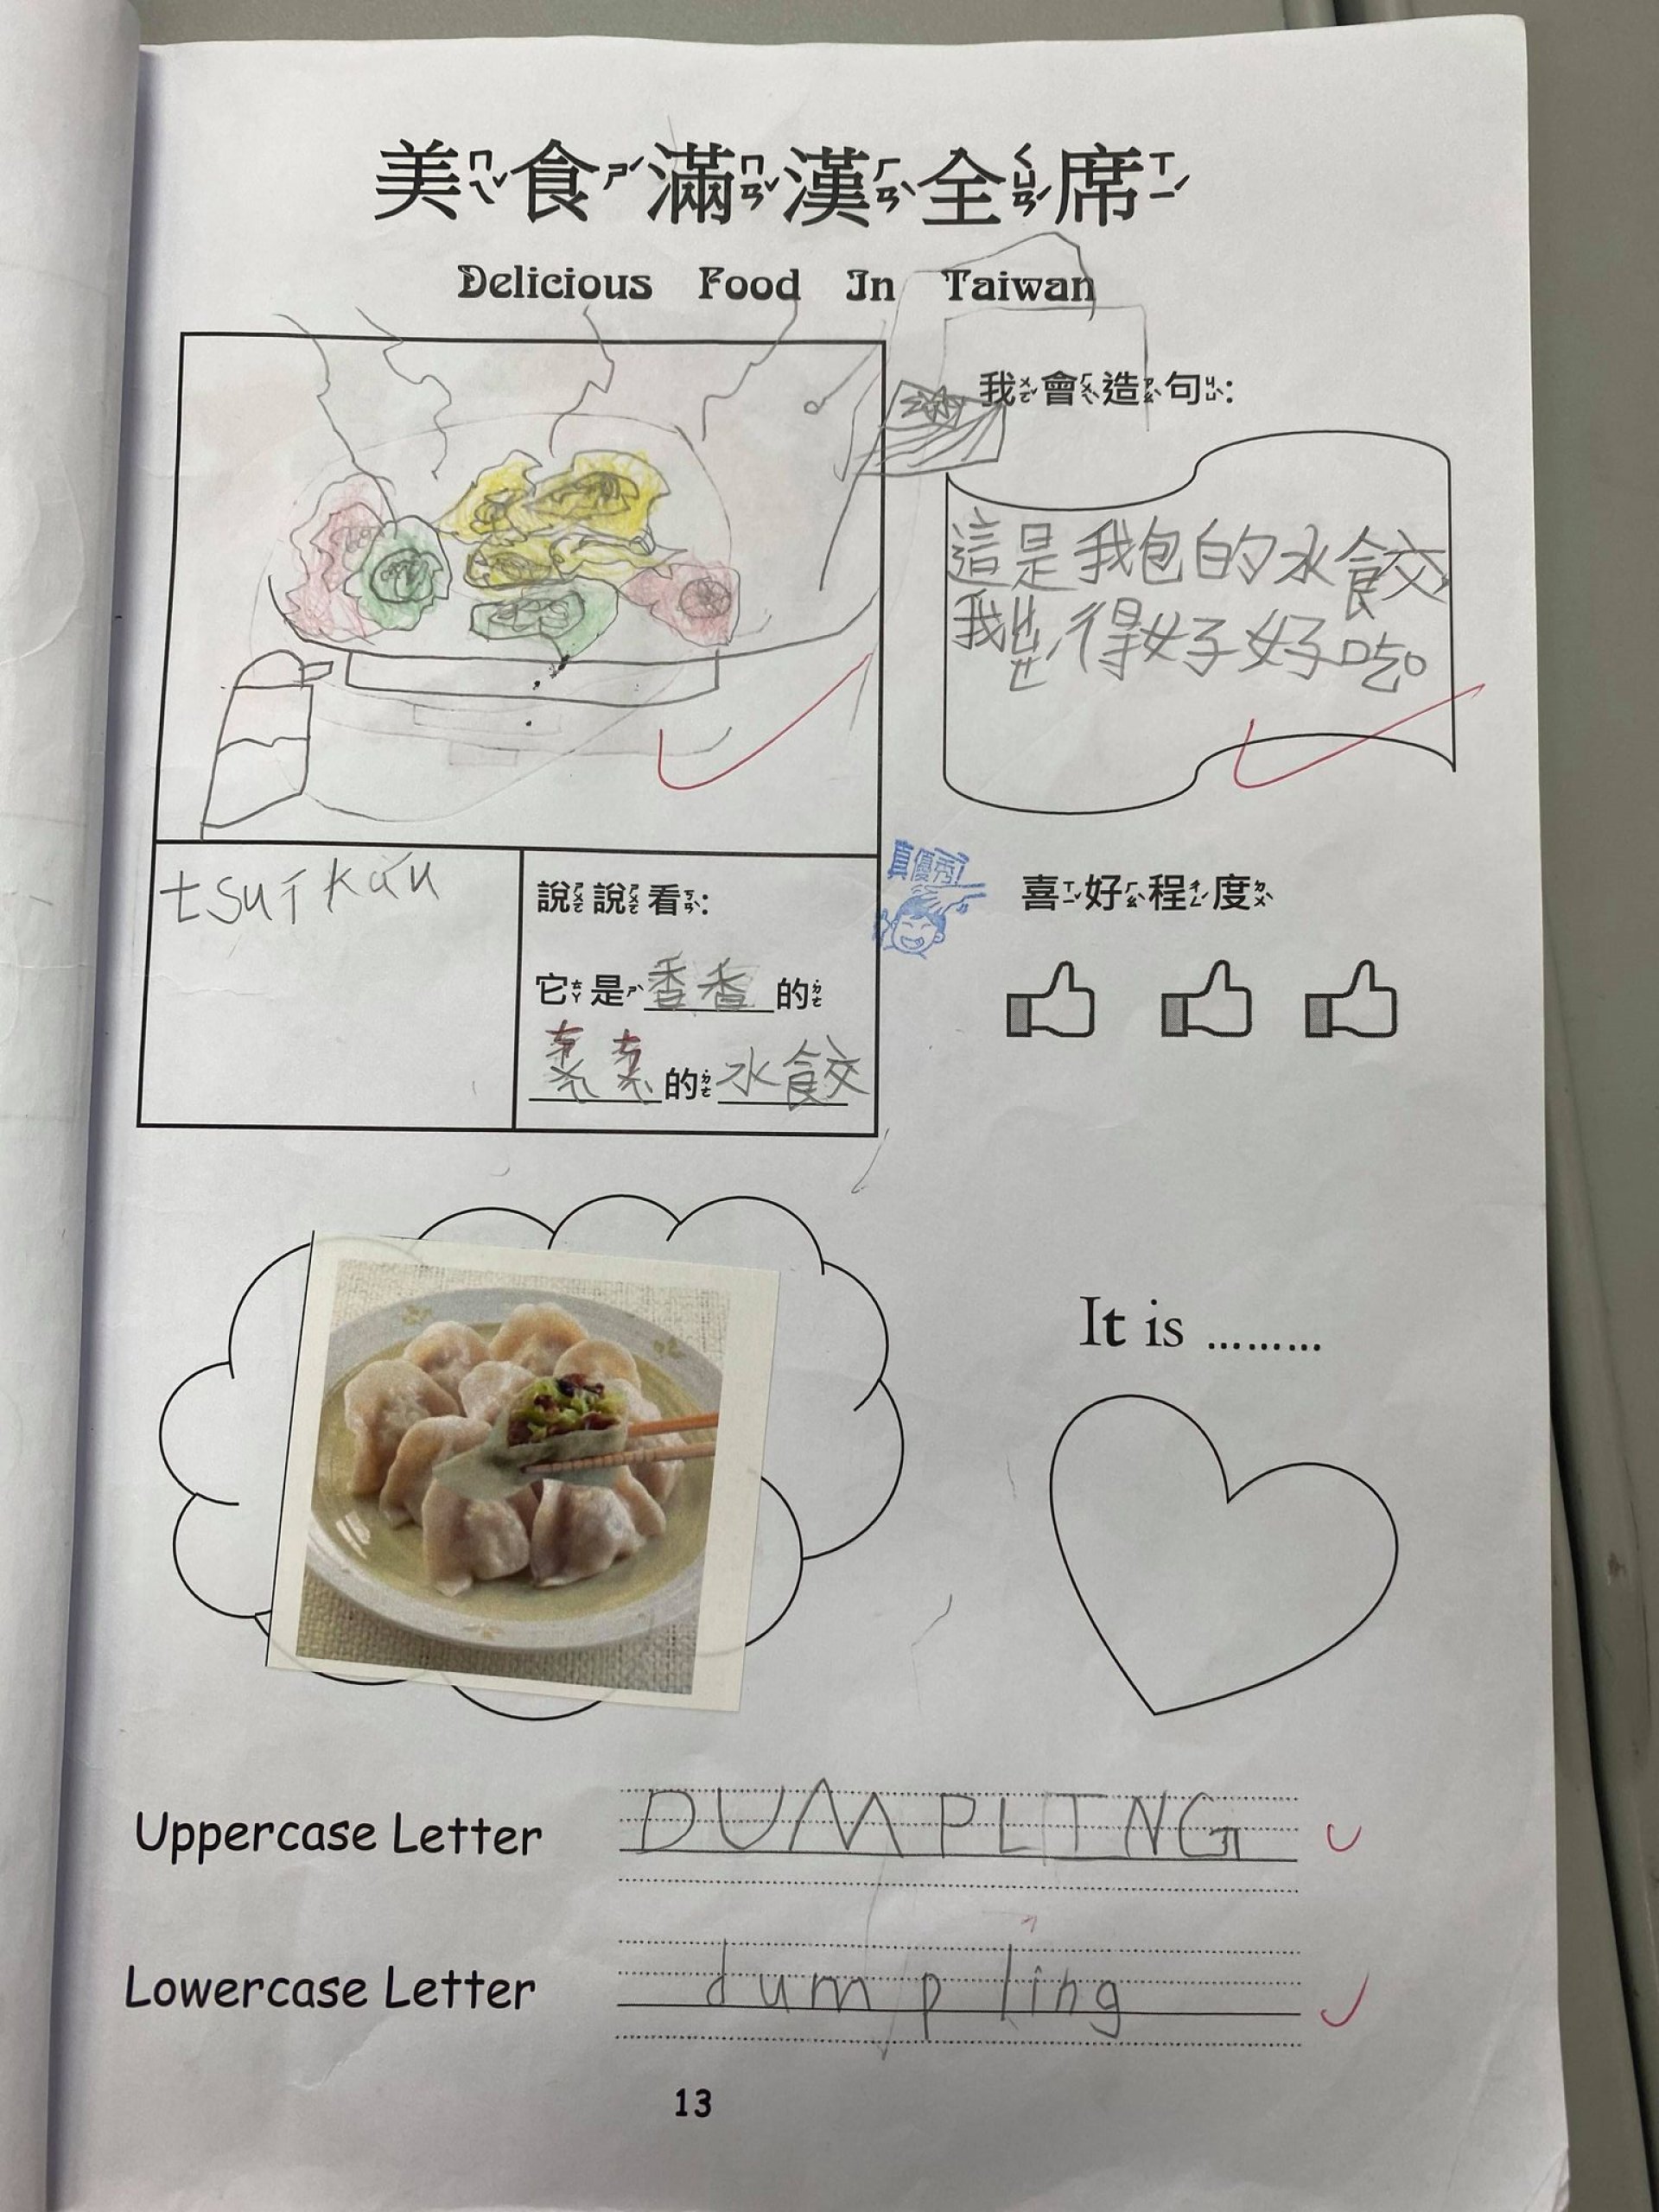 美ㄇㄟˇ食ㄕˊ滿ㄇㄢˇ漢ㄏㄢˋ全ㄑㄩㄢˊ席ㄒㄧˊ
Delicious Food In Taiwan
我ㄨㄛˇ會ㄏㄨㄟˋ造ㄗㄠˋ句ㄐㄩˋ:
這是我包的水餃
我ㄐㄩㄝˊ得好好吃。
tsuí káu
說ㄕㄨㄛ說ㄕㄨㄛ看ㄎㄢˋ:
它ㄊㄚ是ㄕˋ香香的ㄉㄜ˙
的ㄉㄜ˙水餃
真優秀!
喜ㄒㄧˇ好ㄏㄠˋ程ㄔㄥˊ度ㄉㄨˋ
It is .........
Uppercase Letter DUMPLING
Lowercase Letter dumpling
13